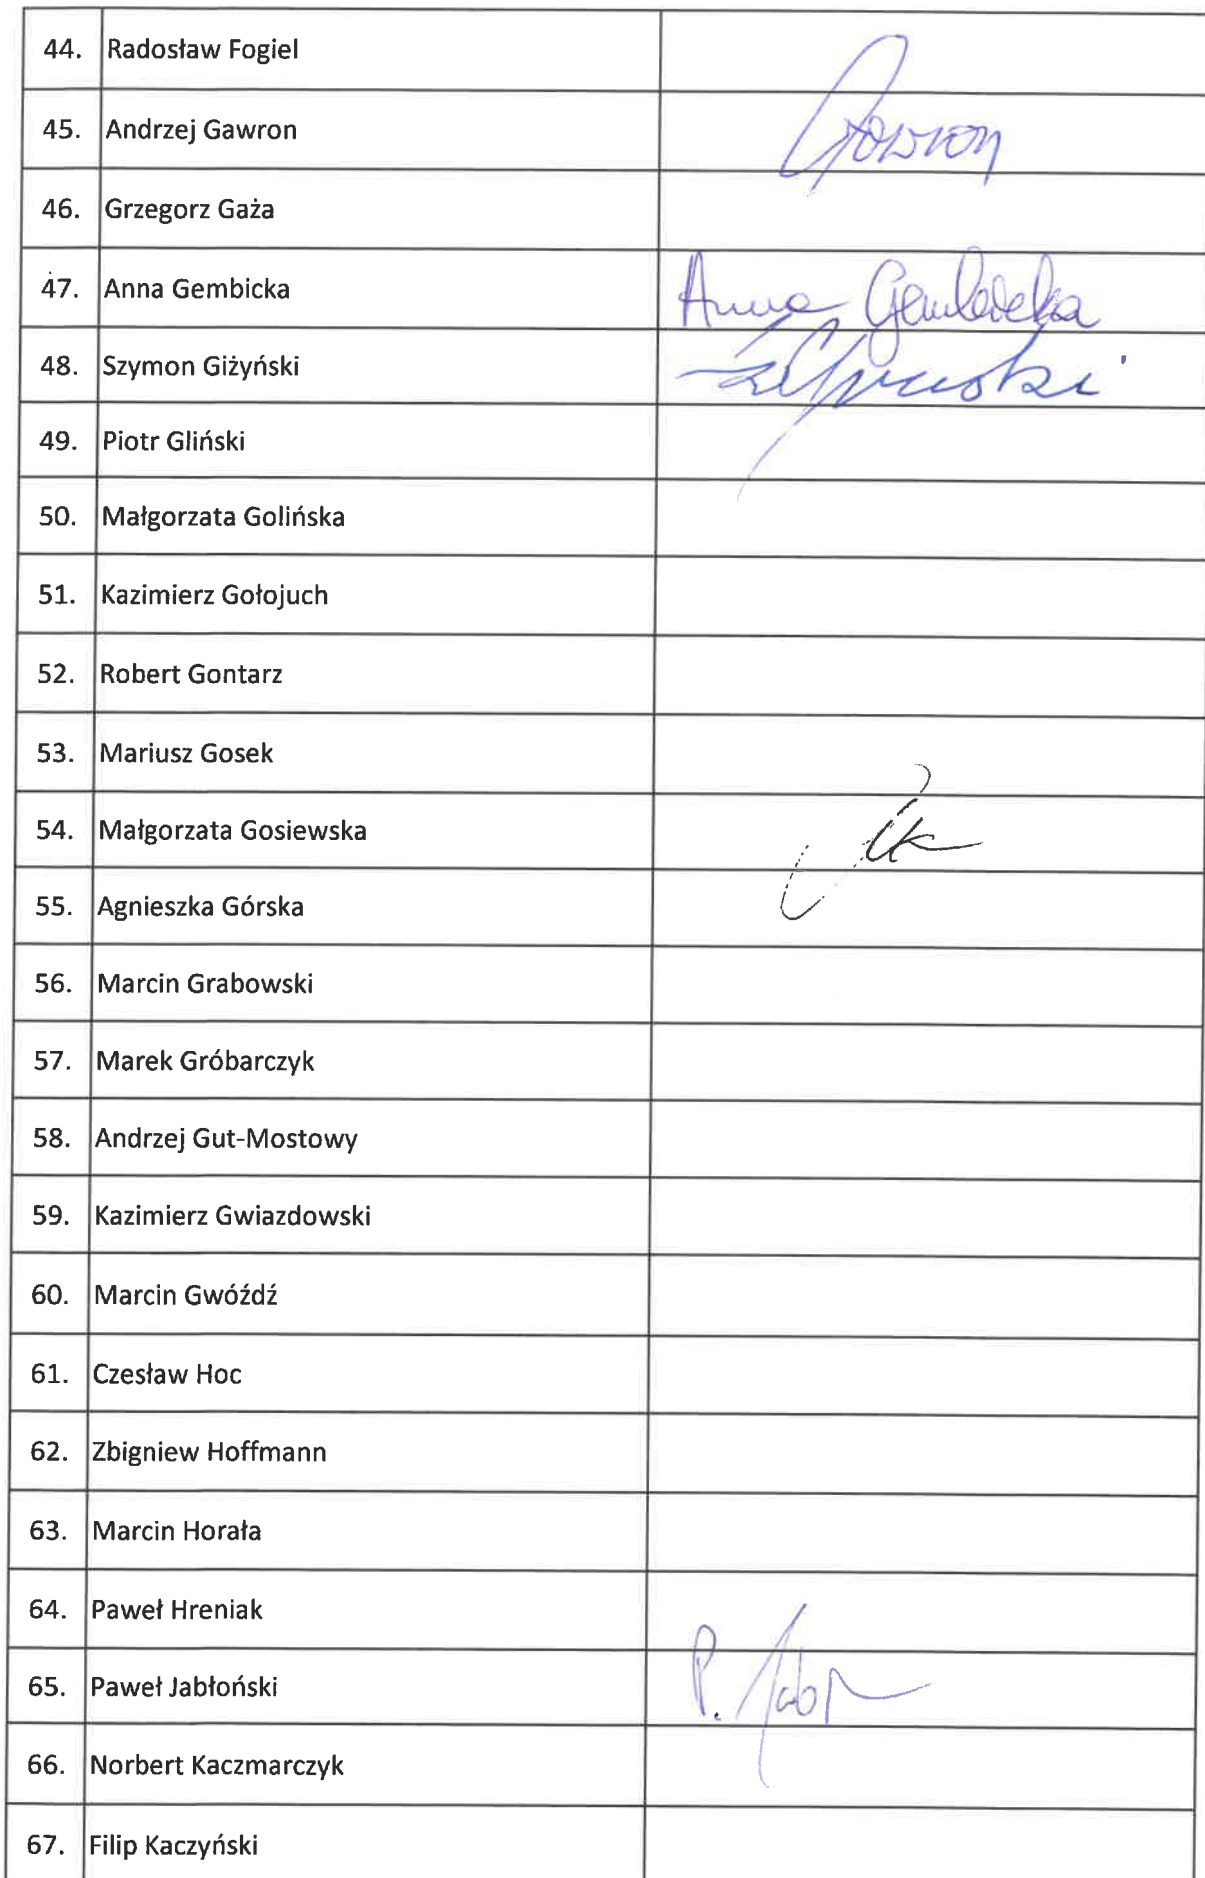 44. Radosław Fogiel
45. Andrzej Gawron Gawron
46. Grzegorz Gaża
47. Anna Gembicka Anna Gembicka
48. Szymon Giżyński
49. Piotr Gliński
50. Małgorzata Golińska
51. Kazimierz Gołojuch
52. Robert Gontarz
53. Mariusz Gosek
54. Małgorzata Gosiewska
55. Agnieszka Górska
56. Marcin Grabowski
57. Marek Gróbarczyk
58. Andrzej Gut-Mostowy
59. Kazimierz Gwiazdowski
60. Marcin Gwóźdź
61. Czesław Hoc
62. Zbigniew Hoffmann
63. Marcin Horała
64. Paweł Hreniak
65. Paweł Jabłoński P. Jab
66. Norbert Kaczmarczyk
67. Filip Kaczyński